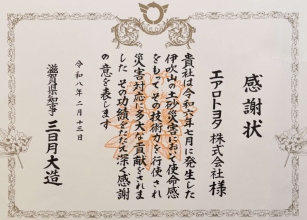 感謝状
エアロトヨタ 株式会社 様
貴社は令和六年七月に発生した
伊吹山の土砂災害において使命感
をもってその技術力を行使され
災害対応に多大な貢献をされま
した その功績をたたえ深く感謝
の意を表します
令和八年二月十三日
滋賀県知事 三日月大造